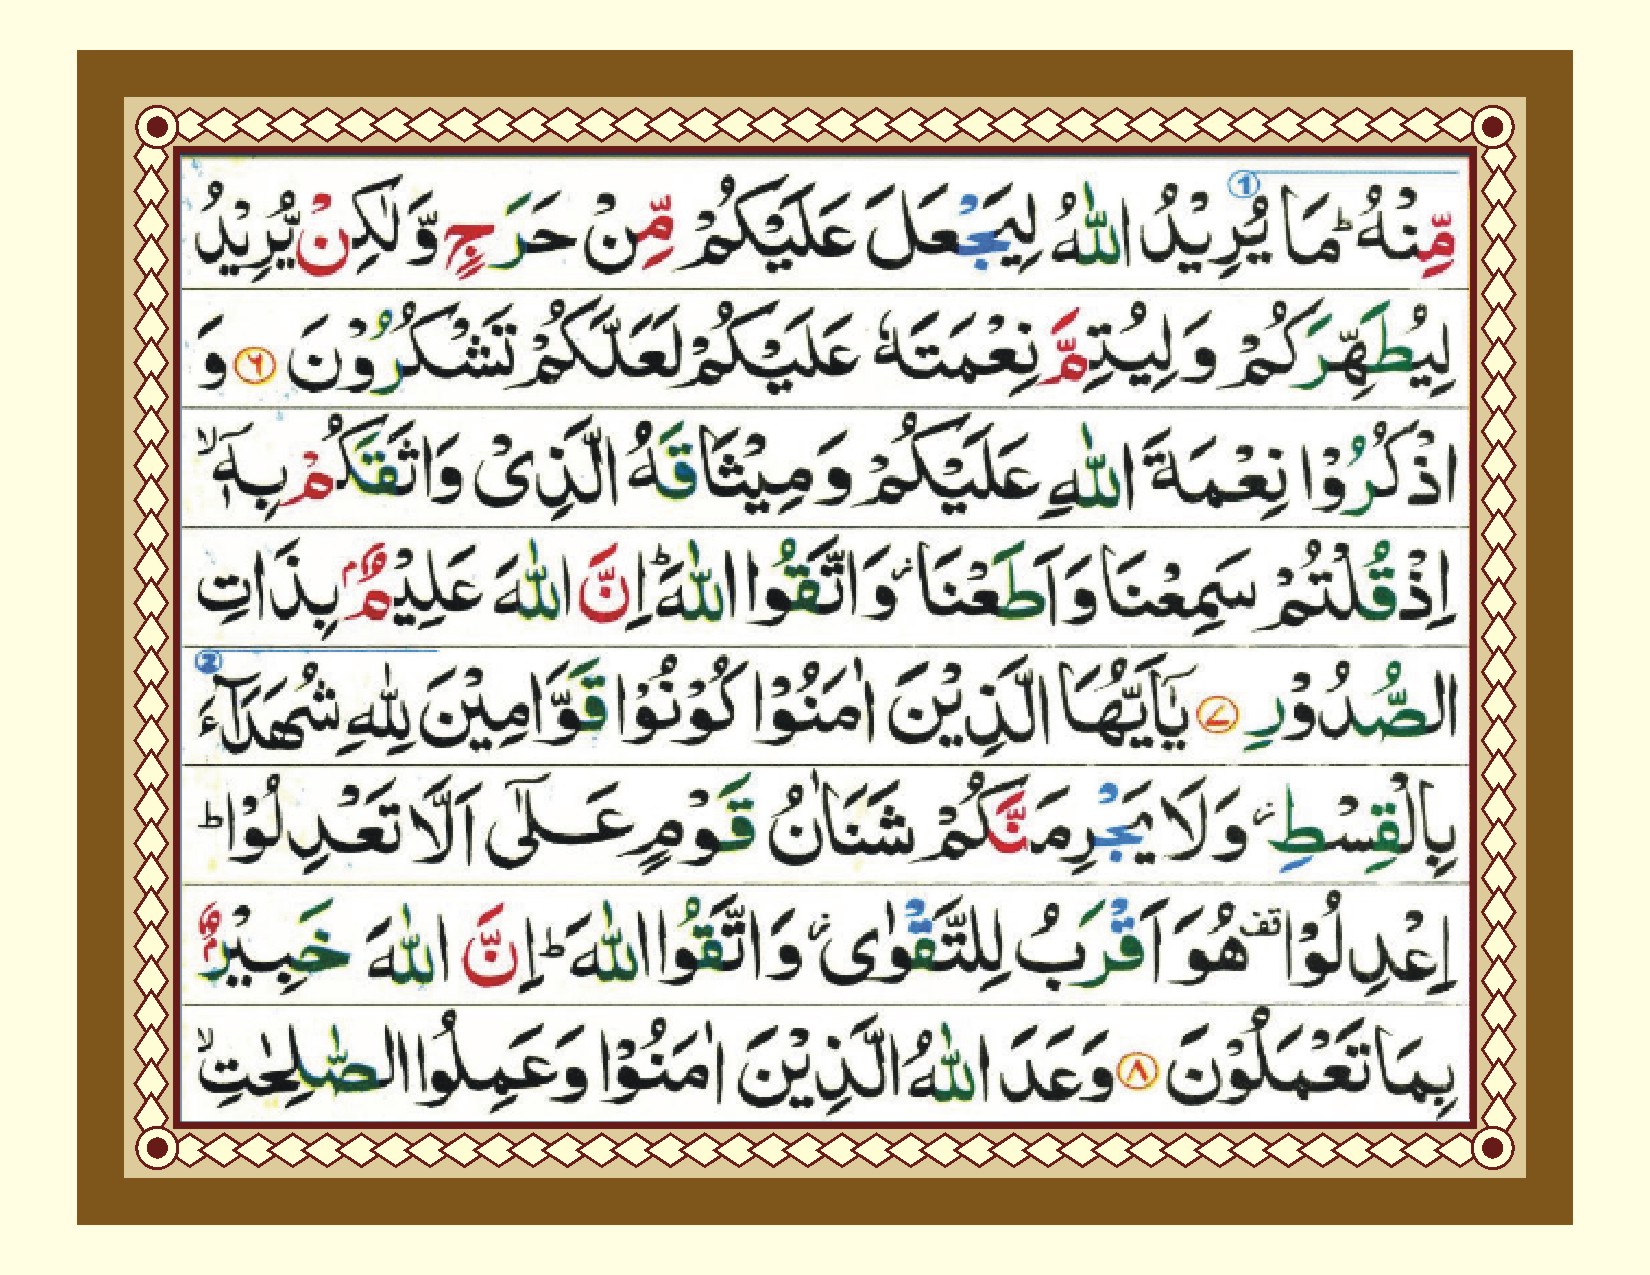 مِّنْهُ ؕ مَا يُرِيْدُ اللّٰهُ لِيَجْعَلَ عَلَيْكُمْ مِّنْ حَرَجٍ وَّلٰكِنْ يُّرِيْدُ ①
لِيُطَهِّرَكُمْ وَلِيُتِمَّ نِعْمَتَهٗ عَلَيْكُمْ لَعَلَّكُمْ تَشْكُرُوْنَ ۶ وَ
اذْكُرُوْا نِعْمَةَ اللّٰهِ عَلَيْكُمْ وَمِيْثَاقَهُ الَّذِىْ وَاثَقَكُمْ بِهٖۤ ۙ
اِذْ قُلْتُمْ سَمِعْنَا وَاَطَعْنَا ؗ وَاتَّقُوا اللّٰهَ ؕ اِنَّ اللّٰهَ عَلِيْمٌۢ بِذَاتِ
الصُّدُوْرِ ۷ يٰۤاَيُّهَا الَّذِيْنَ اٰمَنُوْا كُوْنُوْا قَوَّامِيْنَ لِلّٰهِ شُهَدَآءَ ②
بِالْقِسْطِ ؗ وَلَا يَجْرِمَنَّكُمْ شَنَاٰنُ قَوْمٍ عَلٰٓى اَلَّا تَعْدِلُوْا ؕ
اِعْدِلُوْا قف هُوَ اَقْرَبُ لِلتَّقْوٰى ؗ وَاتَّقُوا اللّٰهَ ؕ اِنَّ اللّٰهَ خَبِيْرٌۢ
بِمَا تَعْمَلُوْنَ ۸ وَعَدَ اللّٰهُ الَّذِيْنَ اٰمَنُوْا وَعَمِلُوا الصّٰلِحٰتِ ۙ